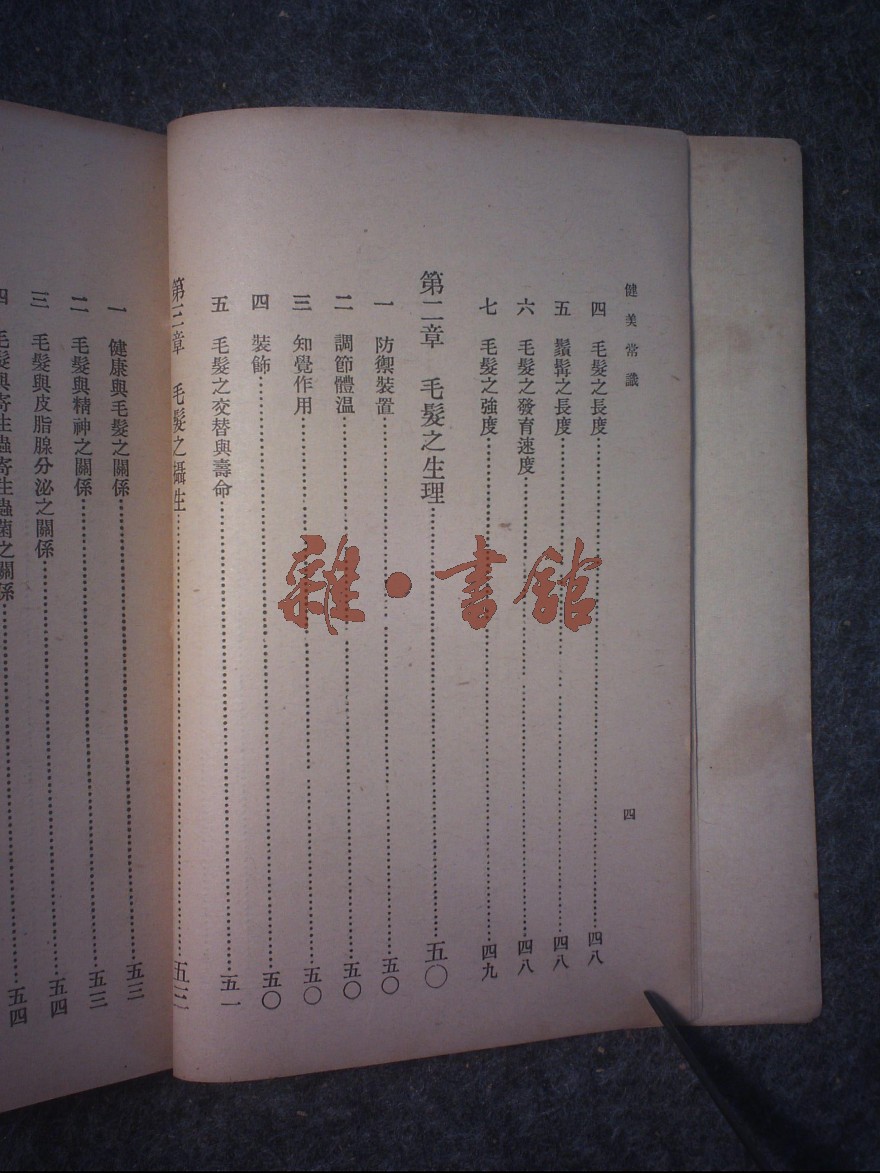 健美常識
四
四 毛髮之長度……四八
五 鬚髯之長度……四八
六 毛髮之發育速度……四八
七 毛髮之強度……四九
第二章 毛髮之生理……五〇
一 防禦裝置……五〇
二 調節體溫……五〇
三 知覺作用……五〇
四 裝飾……五〇
五 毛髮之交替與壽命……五一
第三章 毛髮之攝生……五三
一 健康與毛髮之關係……五三
二 毛髮與精神之關係……五三
三 毛髮與皮脂腺分泌之關係……五四
四 毛髮與寄生蟲寄生蟲菌之關係……五四
雜·書館